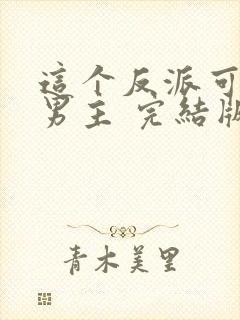 這个反派可
男主 完結版
青木美里